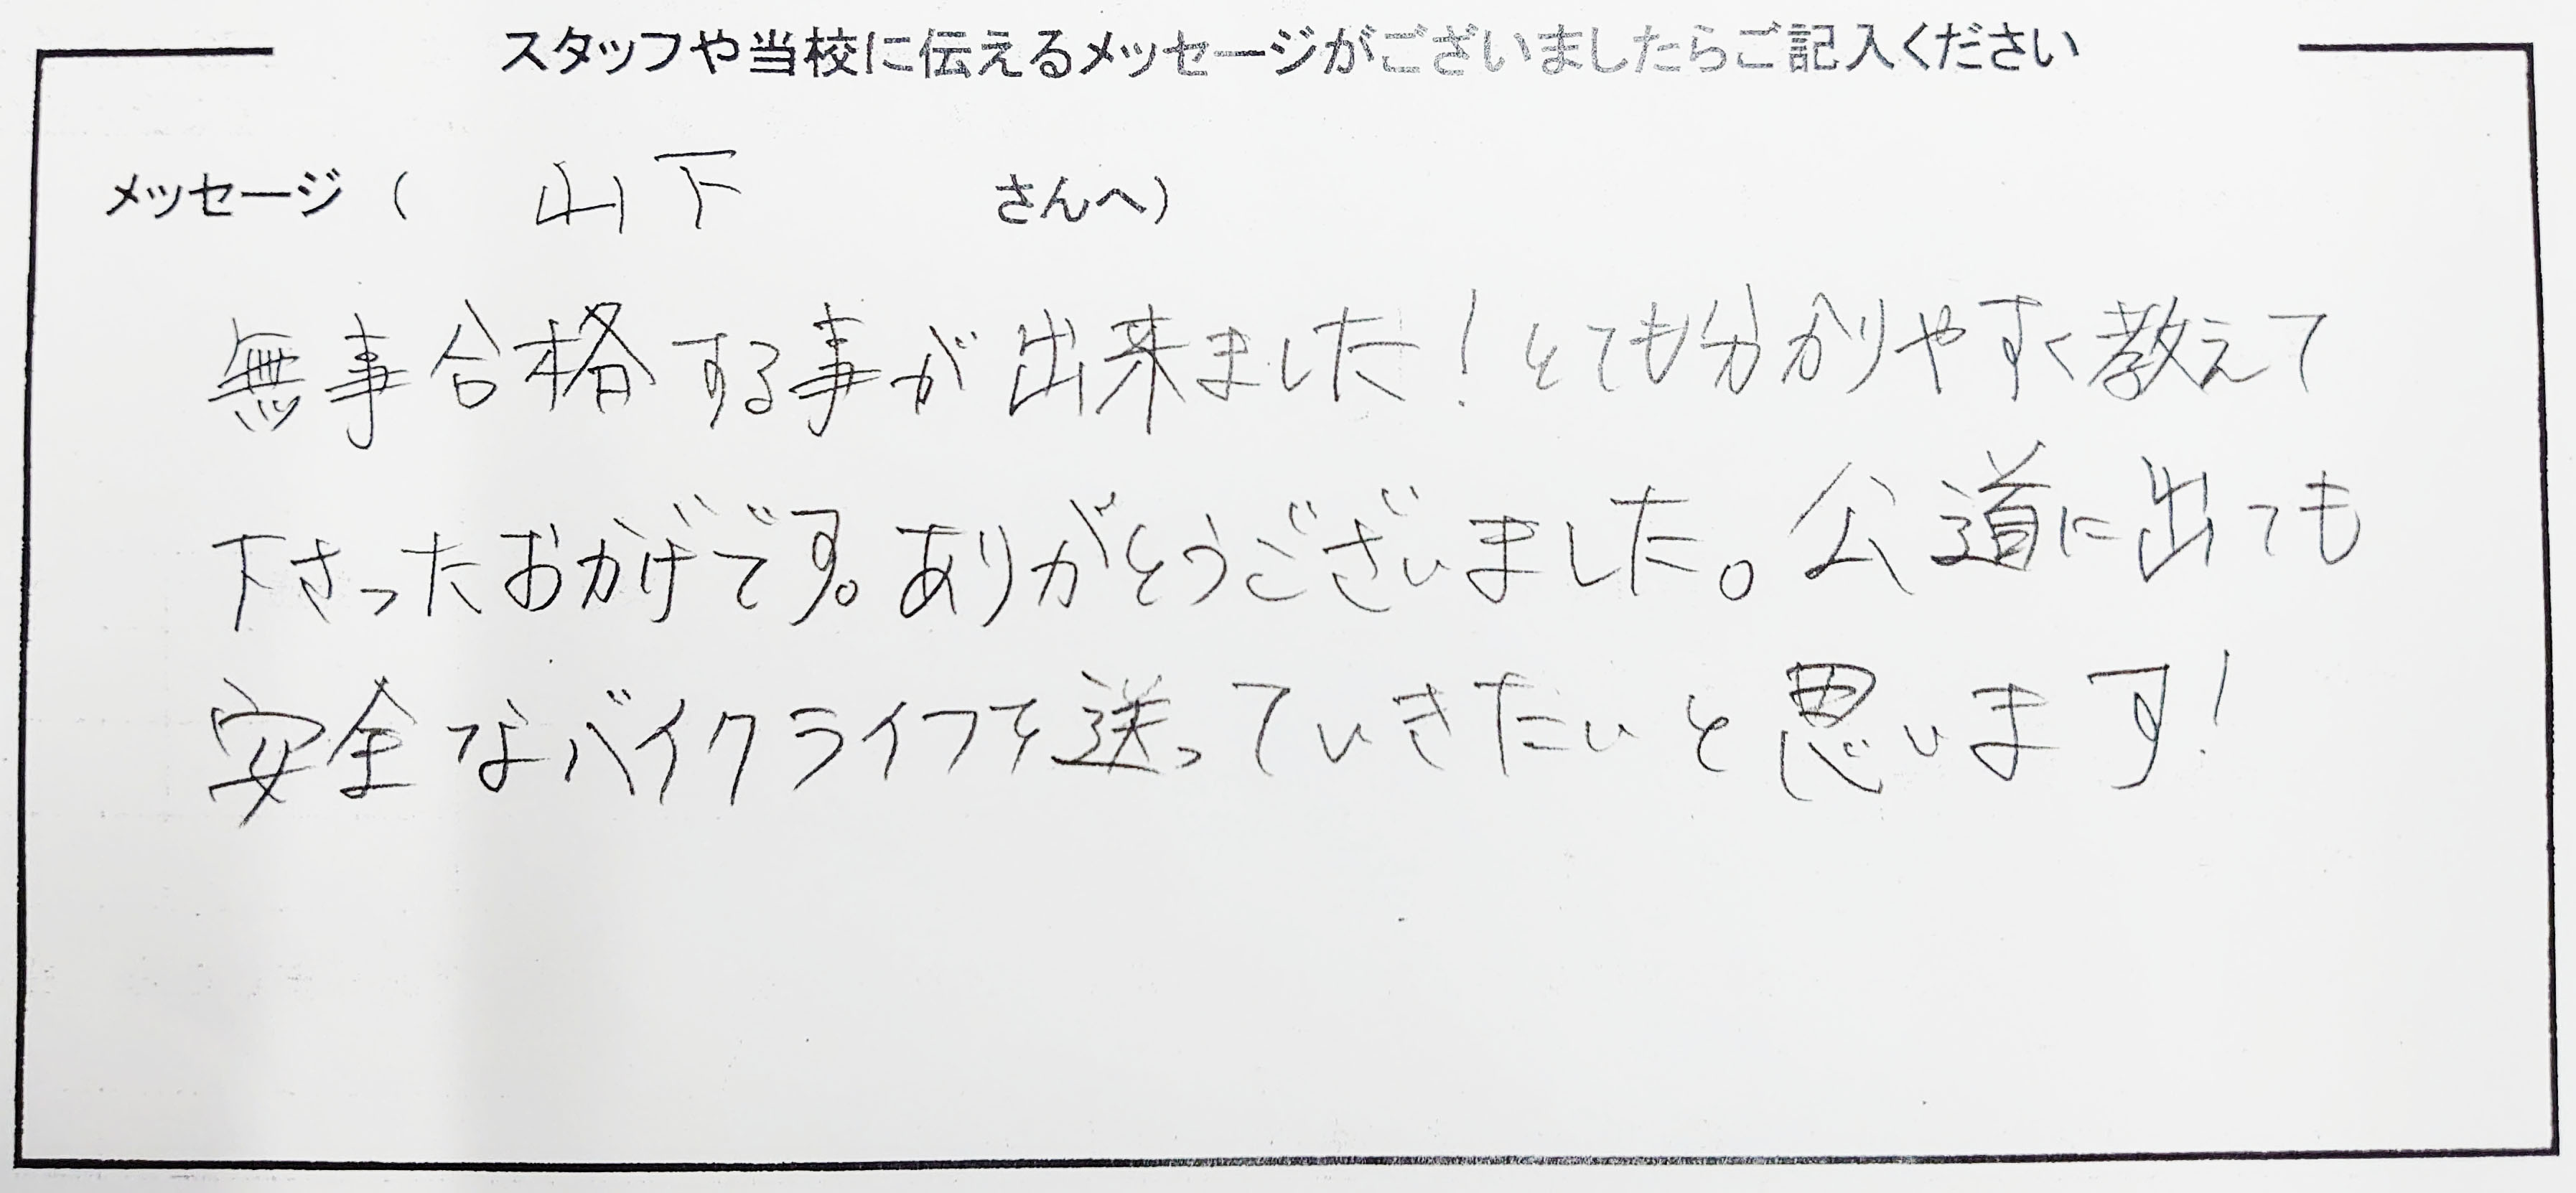 スタッフや当校に伝えるメッセージがございましたらご記入ください
メッセージ（ 山下 さんへ）
無事合格する事が出来ました！とても分かりやすく教えて
下さったおかげです。ありがとうございました。公道に出ても
安全なバイクライフを送っていきたいと思います！